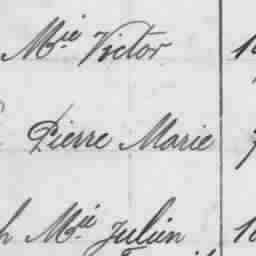 Mie Victor
Pierre Marie
h Mie Julien